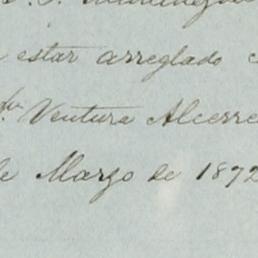 estar arreglado
Ventura Alcerre
de Marzo de 1872